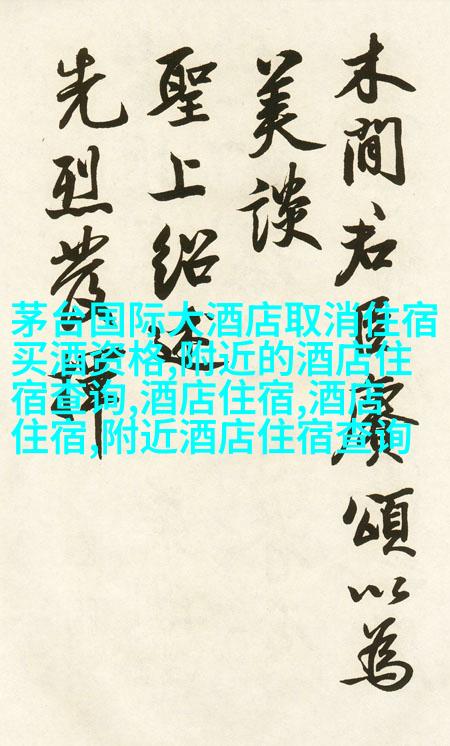 木間君臣賡頌以為
美談
聖上紹述
先烈發
茅台国际大酒店取消住宿
买酒资格,附近的酒店住
宿查询,酒店住宿,酒店
住宿,附近酒店住宿查询